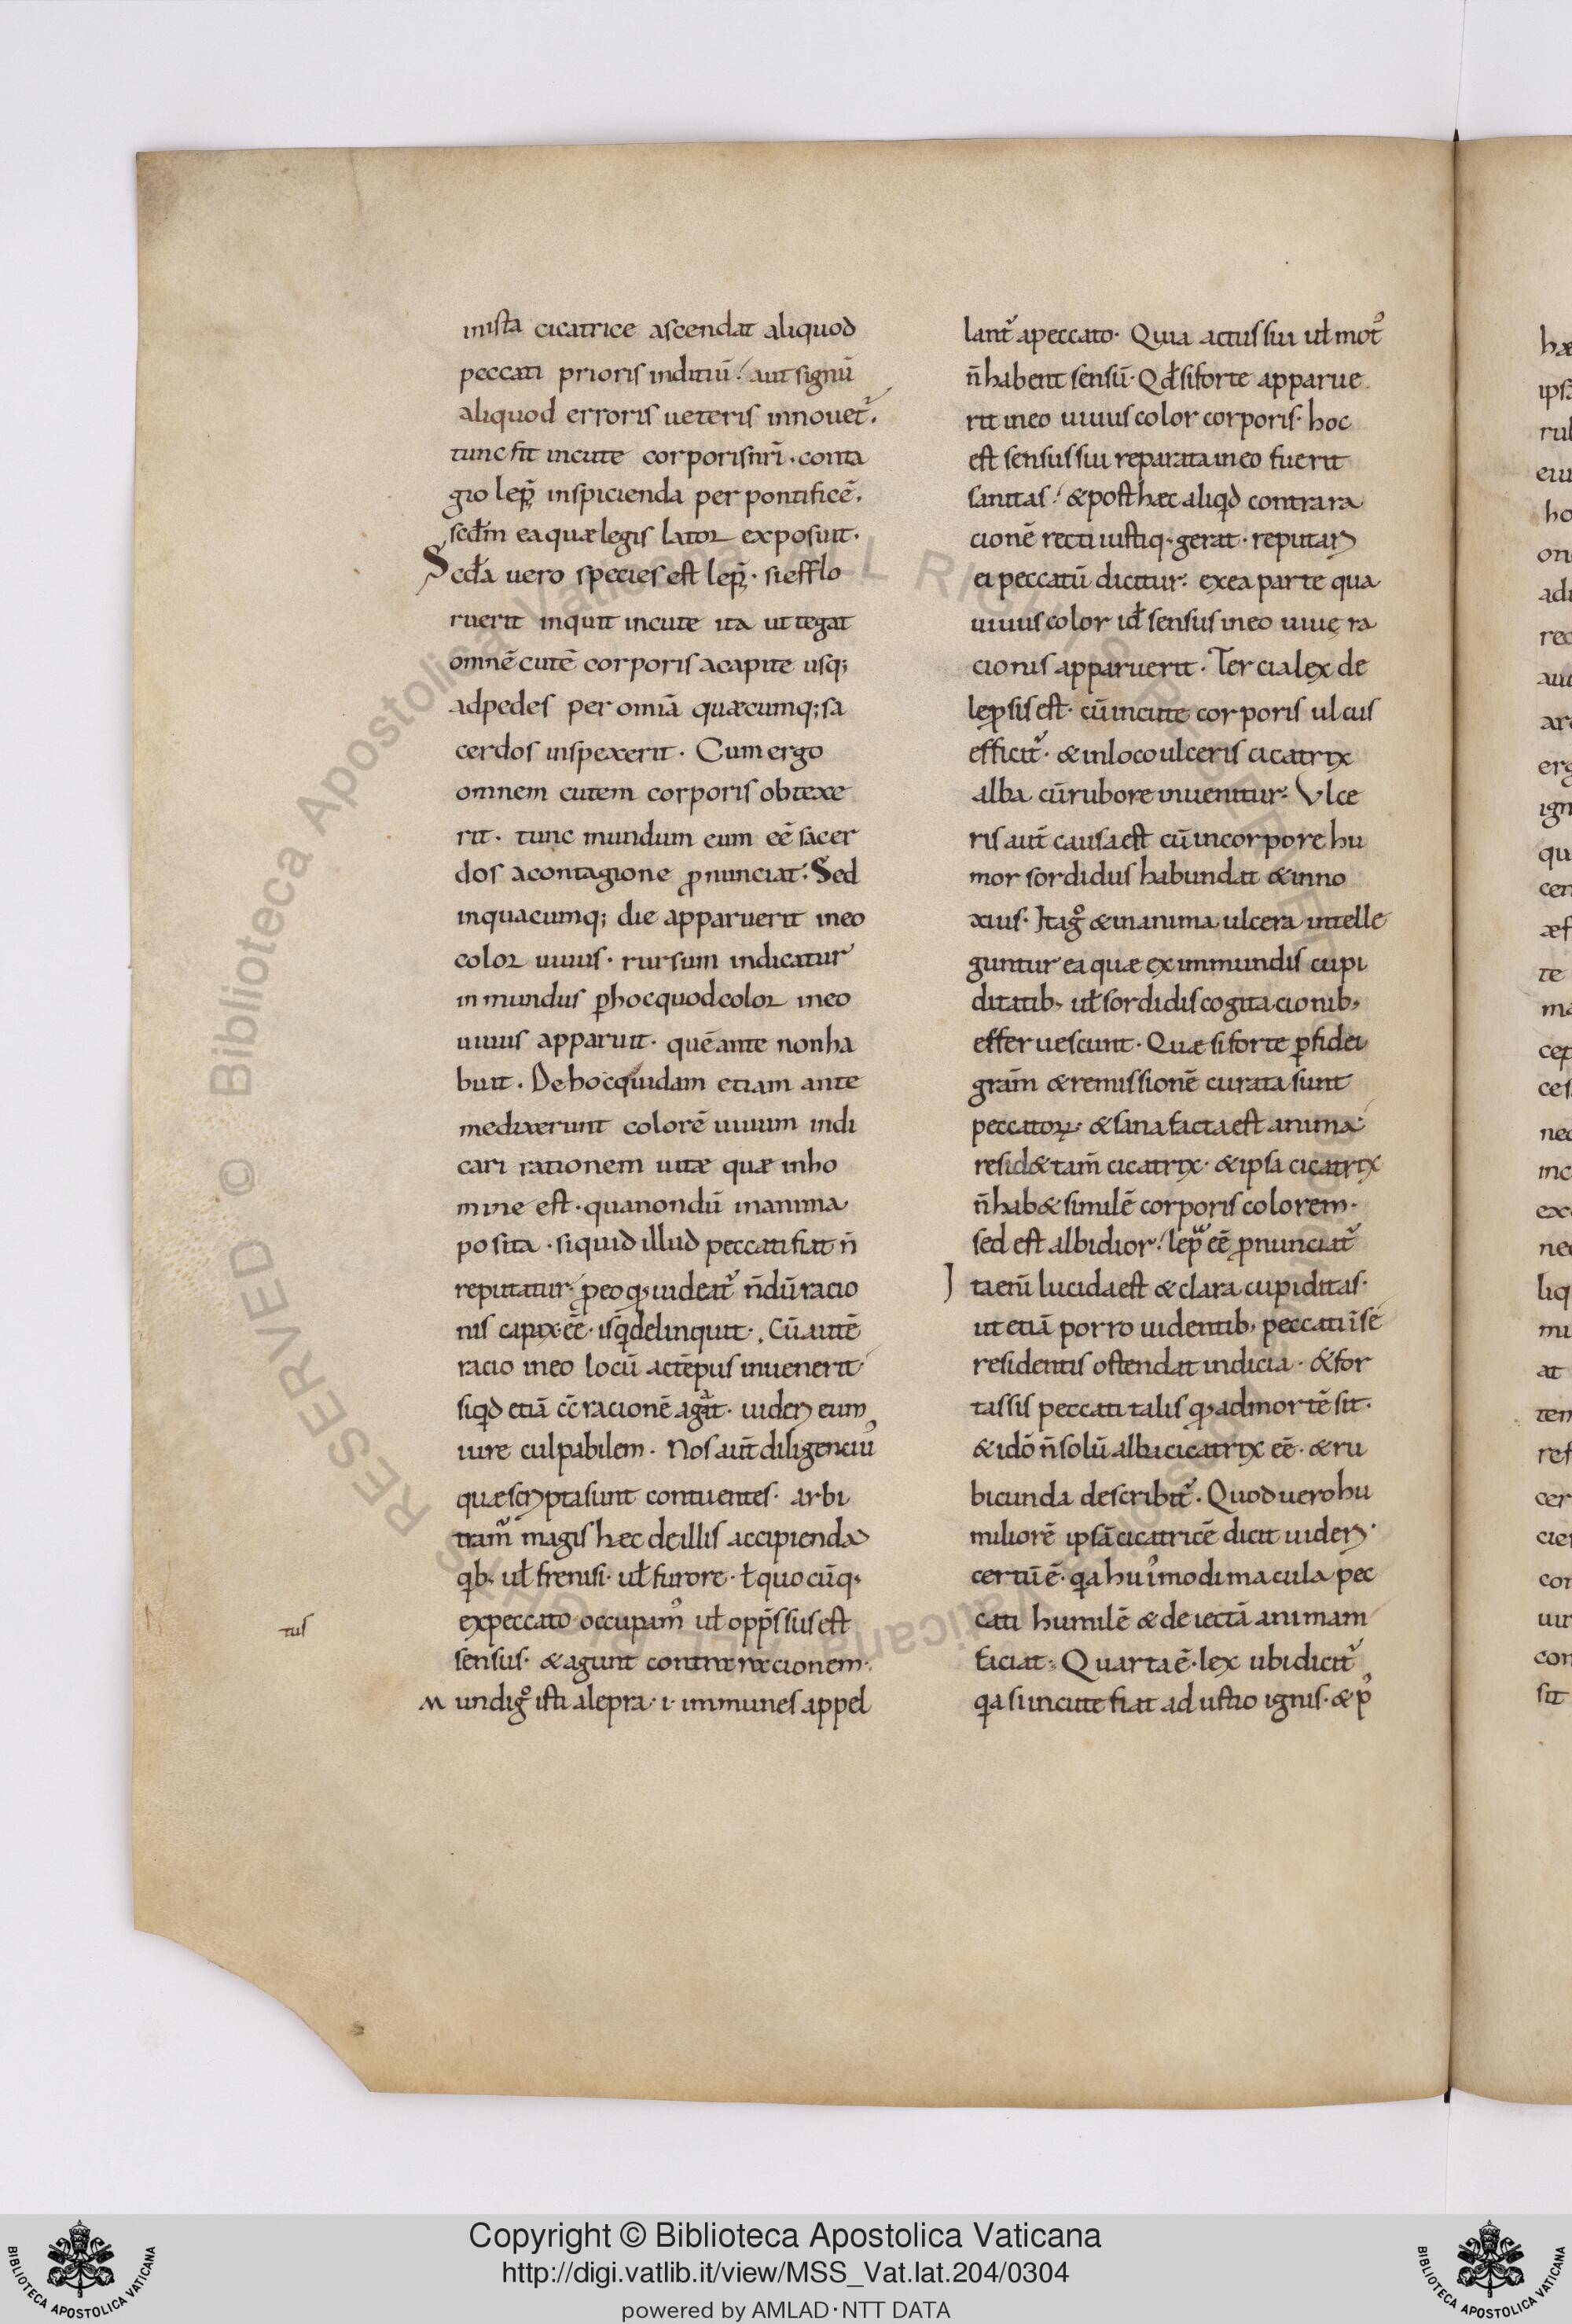 inista cicatrice ascendat aliquod
peccati prioris inditiū. aut signū
aliquod erroris ueteris innouet᷑.
tunc fit incute corporis nr̄i. conta
gio lep̄ę inspicienda per pontificē.
scd̄m ea quæ legis lator exposuit.
Scd̄a uero species est lep̄ę. si efflo
ruerit inquit incute ita ut tegat
omnē cutē corporis acapite usq;
adpedes per omīa quæcumq; sa
cerdos inspexerit. Cum ergo
omnem cutem corporis obtexe
rit. tunc mundum eum eē sacer
dos acontagione ꝓnunciat. Sed
inquacumq; die apparuerit ineo
color uiuus. rursum indicatur
inmundus ꝑ hoc quod color ineo
uiuus apparuit. quē ante non ha
buit. De hoc quidam etiam ante
me dixerunt colorē uiuum indi
cari rationem uitæ quæ inho
mine est. qua nondū inanima
posita. siquid illud peccati fiat n̄
reputatur. ꝓeo qđ uideat᷑ n̄dū racio
nis capax eē. is qui delinquit. Cū autē
racio ineo locū actēpus inuenerit
siqđ etiā cc̄ racionē agat. uideri eum
iure culpabilem. Nos aut̄ diligenciu᾽
quæ scripta sunt contuentes. arbi
tram᷑ magis hæc de illis accipienda
qib; ut̄ frenisi. ut̄ furore. ł quocūq;
expeccato occupam᾽ ut̄ opp̄ssus est
sensus. & agunt contra racionem.
tus
Mundi g̊ isti alepra. i. immunes appel
lant᷑ apeccato. Quia actus sui ut̄ mot᾽
n̄ habent sensū. Qđ si forte apparue
rit ineo uiuus color corporis. hoc
est sensus sui reparata ineo fuerit
sanitas. & post hæc aliqđ contra ra
cionē recti iustiq. gerat. reputari
ei peccatū dicitur. exea parte qua
uiuus color id̄ sensus ineo uiuę ra
cionis apparuerit. Tercia lex de
leprosis est. cū incute corporis ulcus
efficit᷑. & inloco ulceris cicatrix
alba cū rubore inuenitur. Vlce
ris aut̄ causa est cū incorpore hu
mor sordidus habundat & inno
xius. Itaq̊ & inanima ulcera intelle
guntur ea quæ ex immundis cupi
ditatib; ut̄ sordidis cogitacionib;
efferuescunt. Quæ si forte ꝑ fidei
gram̄ & remissionē curata sunt
peccatoꝝ. & sana facta est anima
resid& tam̄ cicatrix. & ipsa cicatrix
n̄ hab& similē corporis colorem.
sed est albidior. lep̄ eē ꝓnunciat᷑
Ita enī lucida est & clara cupiditas.
ut etiā porro uidentib; peccati īsē
residentis ostendat indicia. & for
tassis peccati talis qđ admortē sit.
& idō n̄ solū alba cicatrix eē. & ru
bicunda describit᷑. Quod uero hu
miliorē ipsā cicatricē dicit uideri.
certū ē. qa hui᾽modi macula pec
cati humilē & deiectā animam
faciat. Quarta ē. lex ubi dicit᷑
qa si incute fiat adustio ignis. & p᾽